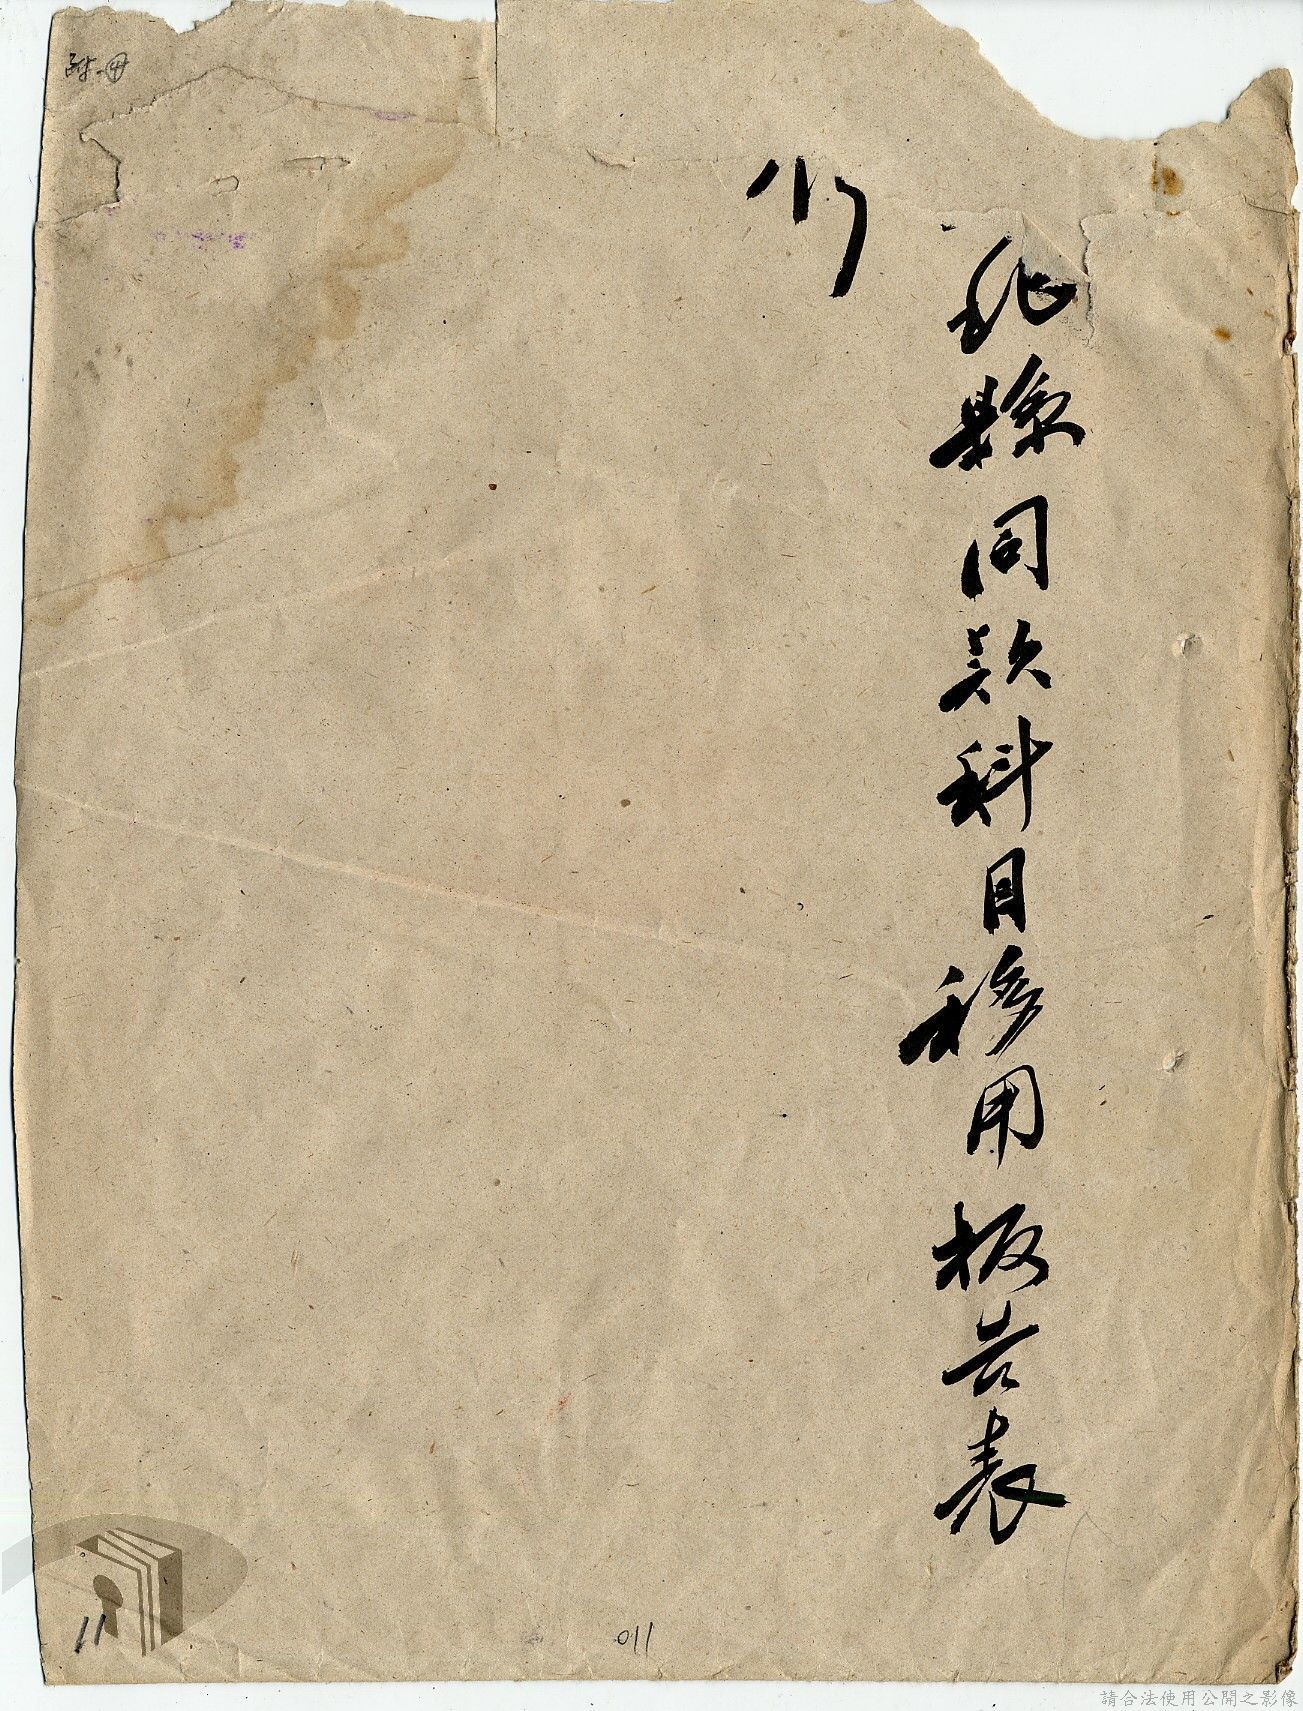 縣同款科目移用報告表
附冊
11
011
請合法使用公開之影像